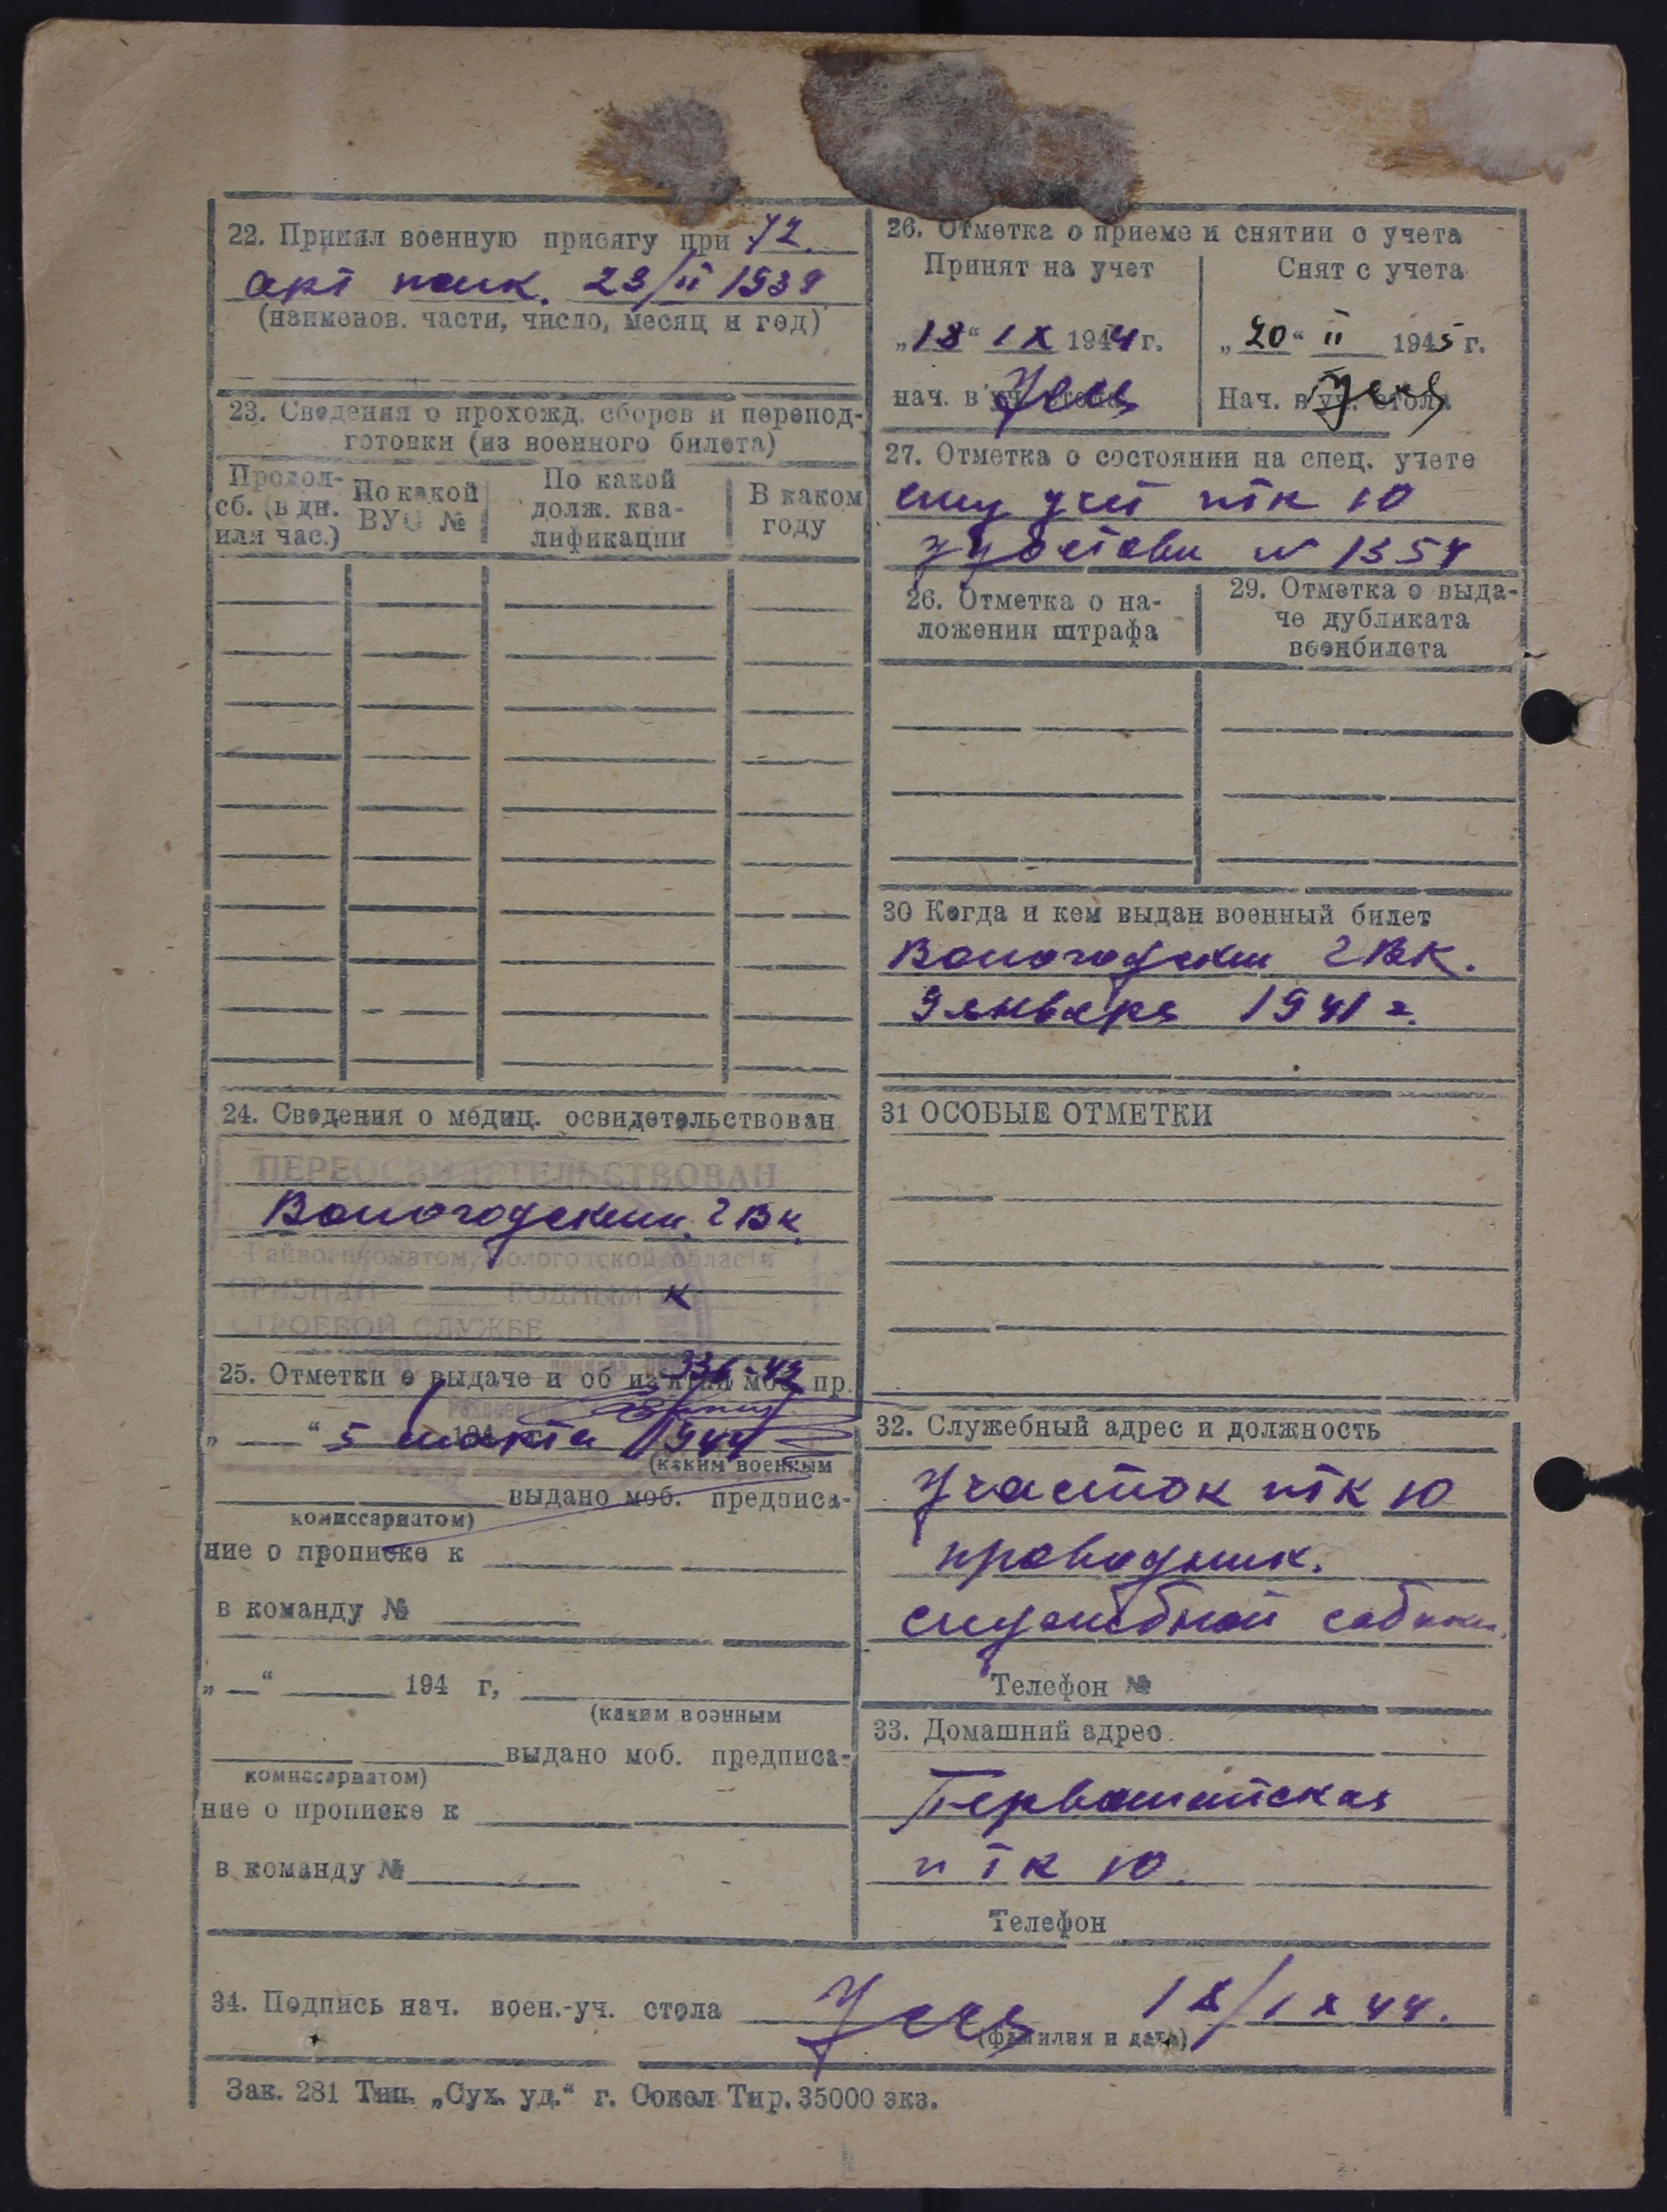 22. Принял военную присягу при 72.
арт полк. 23/II 1939
(наименов. части, число, месяц и год)
23. Сведения о прохожд. сборов и перепод-
готовки (из военного билета)
Продол-
сб. (в дн.
или час.)
По какой
ВУС №
По какой
долж. ква-
лификации
В каком
году
24. Сведения о медиц. освидетельствован
ПЕРЕОСВИДЕТЕЛЬСТВОВАН
Вологодским ГВК
Райвоенкоматом, Вологотской области
ПРИЗНАН ГОДНЫМ К
СТРОЕВОЙ СЛУЖБЕ
336-42
25. Отметки о выдаче и об из'ятии моб. пр.
„ “ 5 марта 1944
(каким военным
выдано моб. предписа-
комиссариатом)
ние о прописке к
в команду №
„ “ 194 г,
(каким военным
выдано моб. предписа-
комиссариатом)
ние о прописке к
в команду №
26. Отметка о приеме и снятии с учета
Принят на учет
„18“ IX 1944 г.
нач. в уч. стола
Снят с учета
„20“ II 1945 г.
Нач. в уч. стола
27. Отметка о состоянии на спец. учете
учет ПТК Ю
№ 1354
26. Отметка о на-
ложении штрафа
29. Отметка о выда-
че дубликата
военбилета
30 Когда и кем выдан военный билет
Вологодским ГВК.
9 января 1941 г.
31 ОСОБЫЕ ОТМЕТКИ
32. Служебный адрес и должность
Участок ПТК Ю
проводник.
служебной собаки
Телефон №
33. Домашний адрес
Первомайская
ПТК Ю.
Телефон
34. Подпись нач. воен.-уч. стола 18/IX 44.
(фамилия и дата)
Зак. 281 Тип. „Сух. уд.“ г. Сокол Тир. 35000 экз.